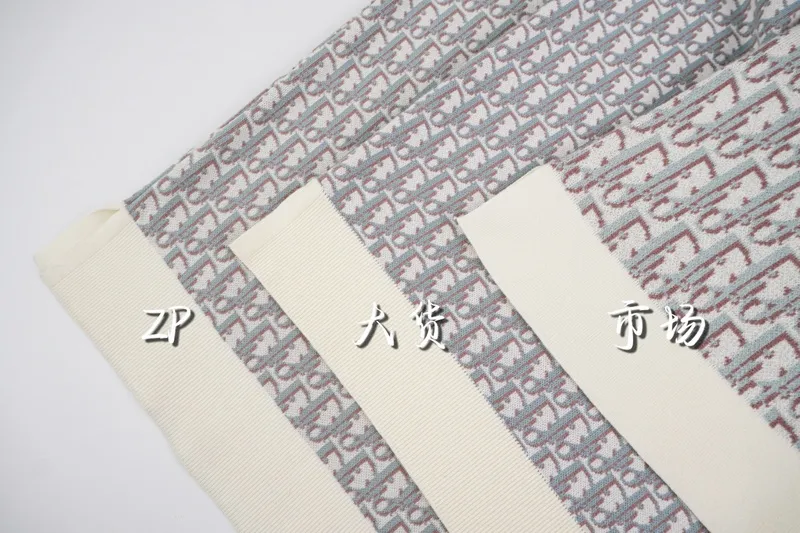 ZP
大货
市场